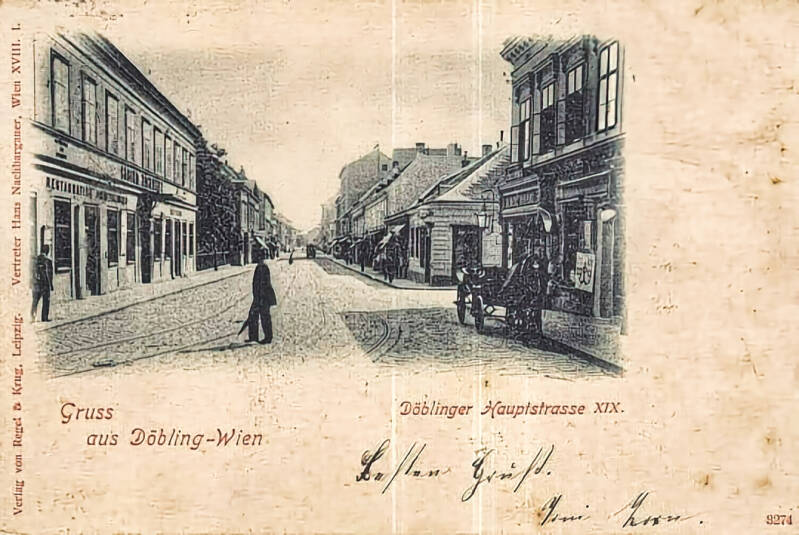 Verlag von Regel & Krug, Leipzig. Vertreter Hans Nachbargauer, Wien XVIII. 1.
RESTAURATION
Gruss
aus Döbling-Wien
Döblinger Hauptstrasse XIX.
Besten Gruß.
3274